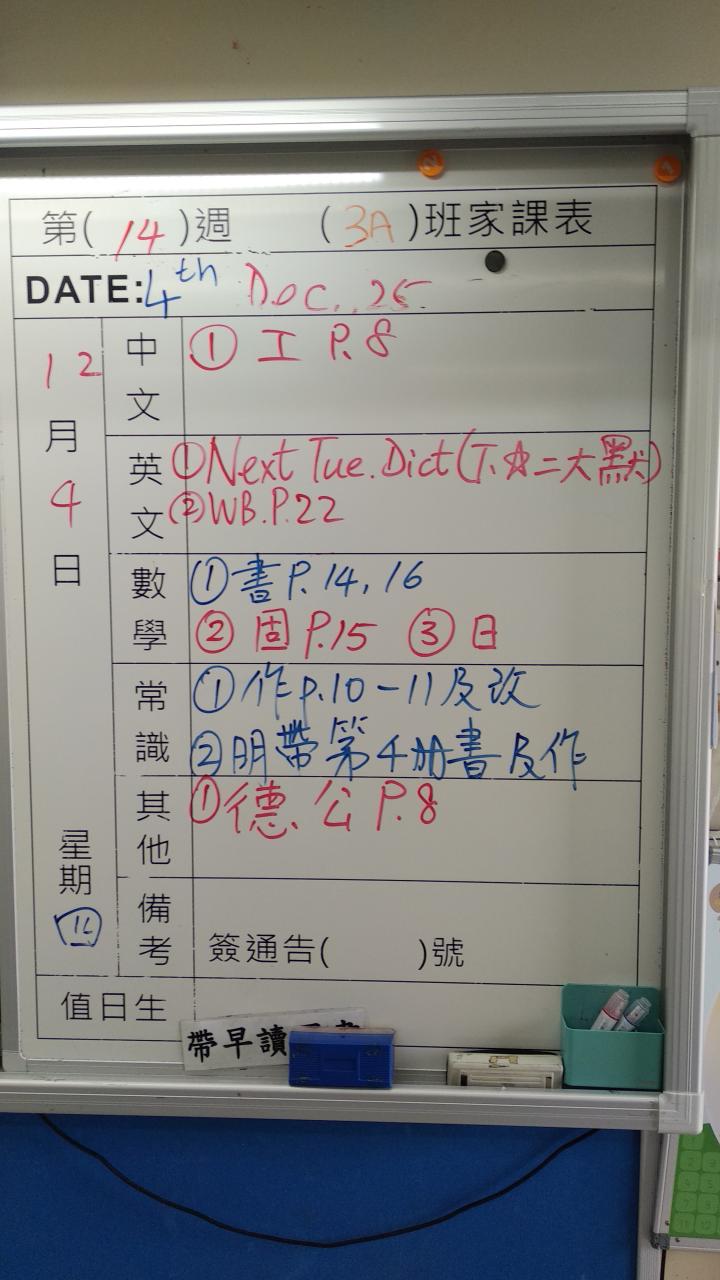 第( 14 )週 ( 3A )班家課表
DATE: 4th Dec. 25
12月4日 星期四
中文 ① 工 P.8
英文 ①Next Tue. Dict(下.☆二大默)
②WB.P.22
數學 ①書P.14, 16
② 固P.15 ③日
常識 ①作p.10-11及改
②明帶第4册書及作
其他 ①德.公 P.8
備考 簽通告( )號
值日生
帶早讀